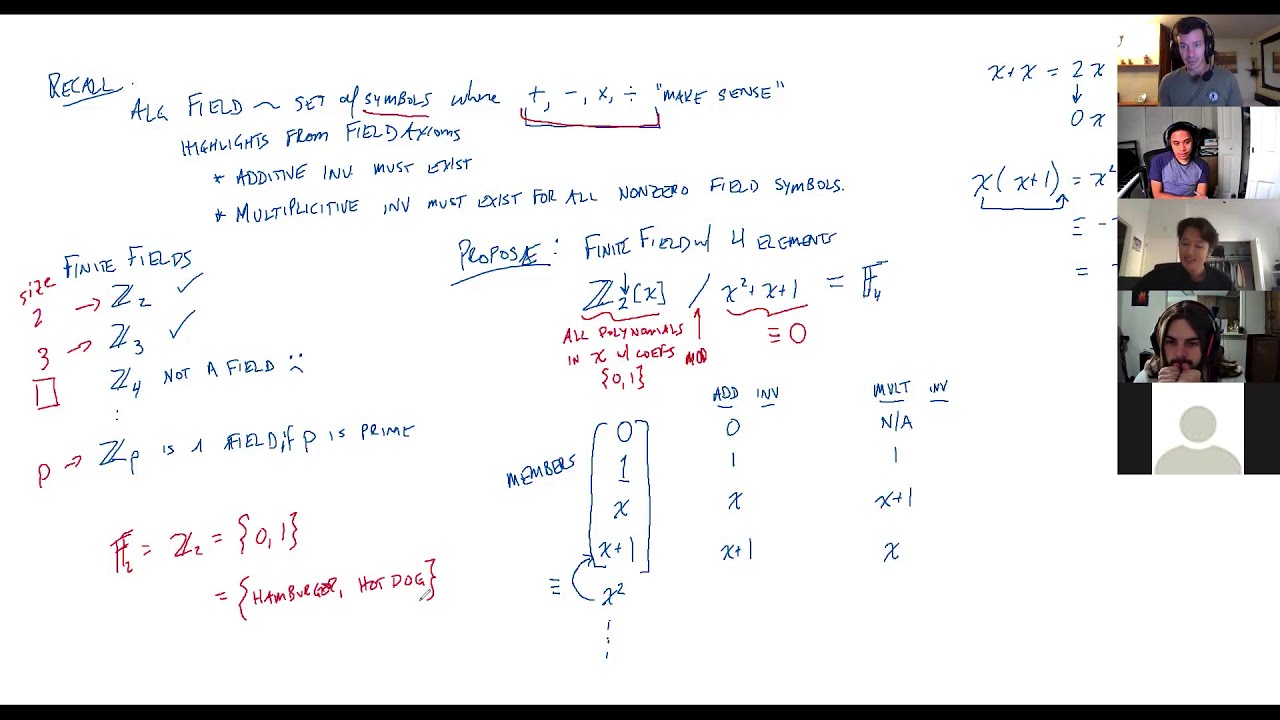 RECALL.
ALG FIELD ~ SET of SYMBOLS where +, -, x, ÷ "MAKE SENSE"
HIGHLIGHTS FROM FIELD AXIOMS
* ADDITIVE INV MUST EXIST
* MULTIPLICITIVE INV MUST EXIST FOR ALL NONZERO FIELD SYMBOLS.
FINITE FIELDS
size
2 → ℤ₂ ✓
3 → ℤ₃ ✓
□ ℤ₄ NOT A FIELD :(
⋮
p → ℤₚ is A FIELD, if p is PRIME
𝔽₂ = ℤ₂ = {0,1}
= {HAMBURGER, HOT DOG}
PROPOSE: FINITE FIELD w/ 4 ELEMENTS
ℤ₂[x] / x²+x+1 = 𝔽₄
ALL POLYNOMIALS
IN x w/ COEFS
{0,1}
MOD
≡ 0
ADD INV MULT INV
MEMBERS
0 0 N/A
1 1 1
x x x+1
x+1 x+1 x
≡ x²
⋮
x+x = 2x
↓
0x
x(x+1) = x²
≡ -
= -